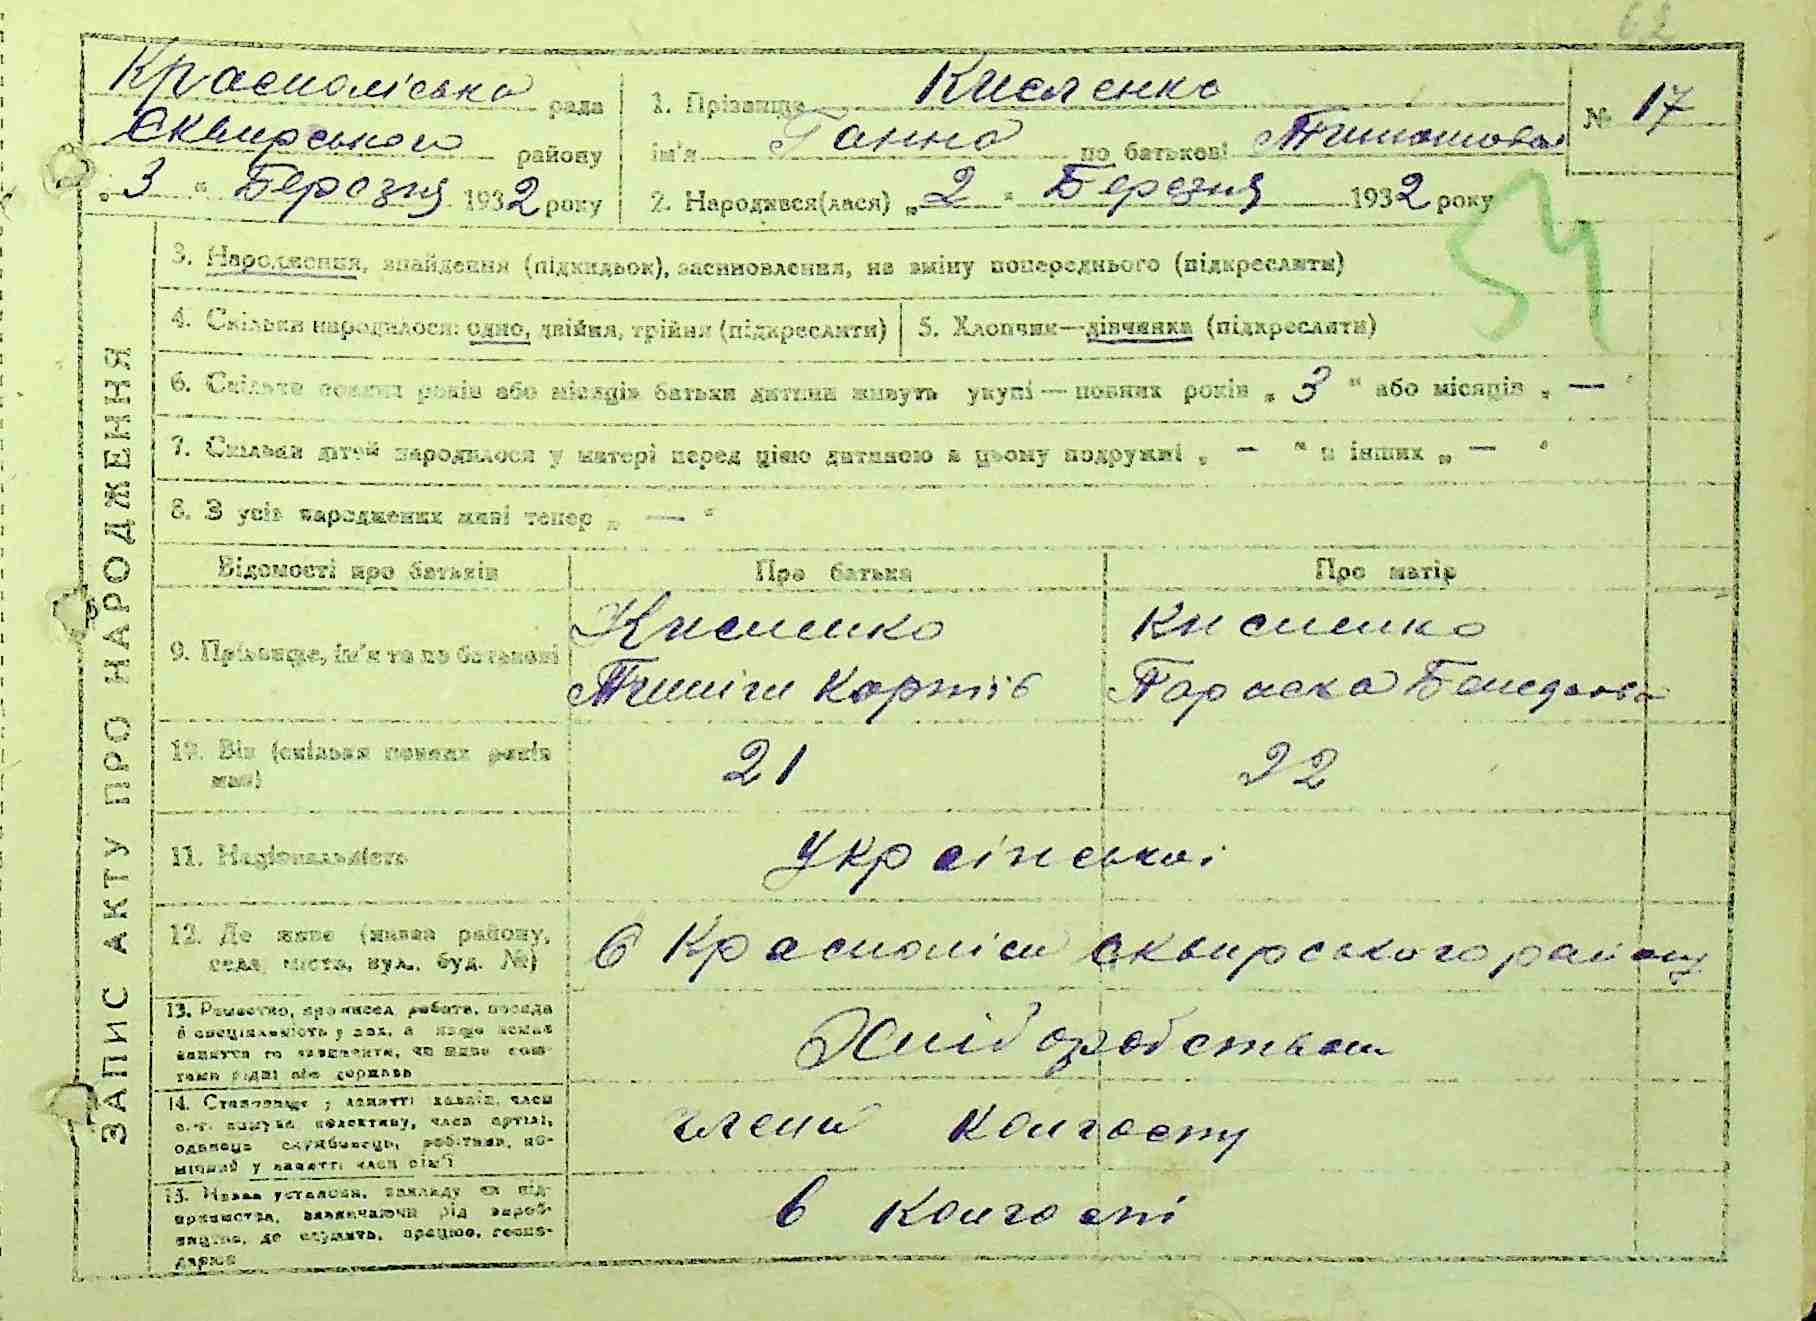 62
Красноліська рада
Сквирського району
„3“ Березня 1932 року
1. Прізвище Кисленко
ім'я Ганна по батькові Тимошова
2. Народився(лася) „2“ Березня 1932 року
№ 17
54
ЗАПИС АКТУ ПРО НАРОДЖЕННЯ
3. Народження, знайдення (підкидьок), засиновлення, на зміну попереднього (підкреслити)
4. Скільки народилося: одно, двійня, трійня (підкреслити)
5. Хлопчик—дівчинка (підкреслити)
6. Скільки повних років або місяців батьки дитини живуть укупі — повних років „3“ або місяців „—“
7. Скільки дітей народилося у матері перед цією дитиною в цьому подружжі „—“ в інших „—“
8. З усіх народжених живі тепер „—“
Відомості про батьків
Про батька
Про матір
9. Прізвище, ім'я та по батькові
Кисленко
Карпів
Кисленко
Параска
10. Вік (скільки повних років має)
21
22
11. Національність
Українські
12. Де живе (назва району, села, міста, вул., буд. №)
в Краснолісах Сквирського району
13. Ремество, промисел, робота, посада
й спеціяльність у
Хліборобством
14. Становище у занятті:
члени колгоспу
15. Назва установи, закладу чи під-
приємства, зазначаючи рід вироб-
ництва, де служить, працює, госпо-
дарює
в колгоспі